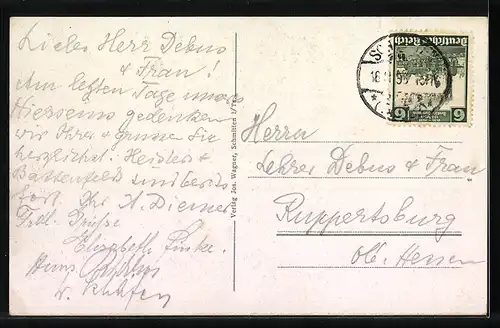 Lieber Herr Debus
& Frau!
Am letzten Tage unsers
Hierseins gedenken
wir Ihrer & grüssen Sie
herzlichst. Heisler &
Battenfeld sind bereits
fort. Ihr A. Diemer
Frdl. Grüße
Elisabeth Finke.
Hans
Verlag Jos. Wagner, Schmitten i/Ts.
Deutsches Reich
6 6
Herrn
Lehrer Debus & Frau
Ruppertsburg
Ob. Hessen